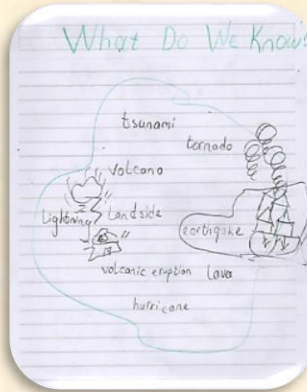 What Do We Know?
tsunami
tornado
volcano
Lightning
Landside
earthqake
volcanic eruption
Lava
hurricane